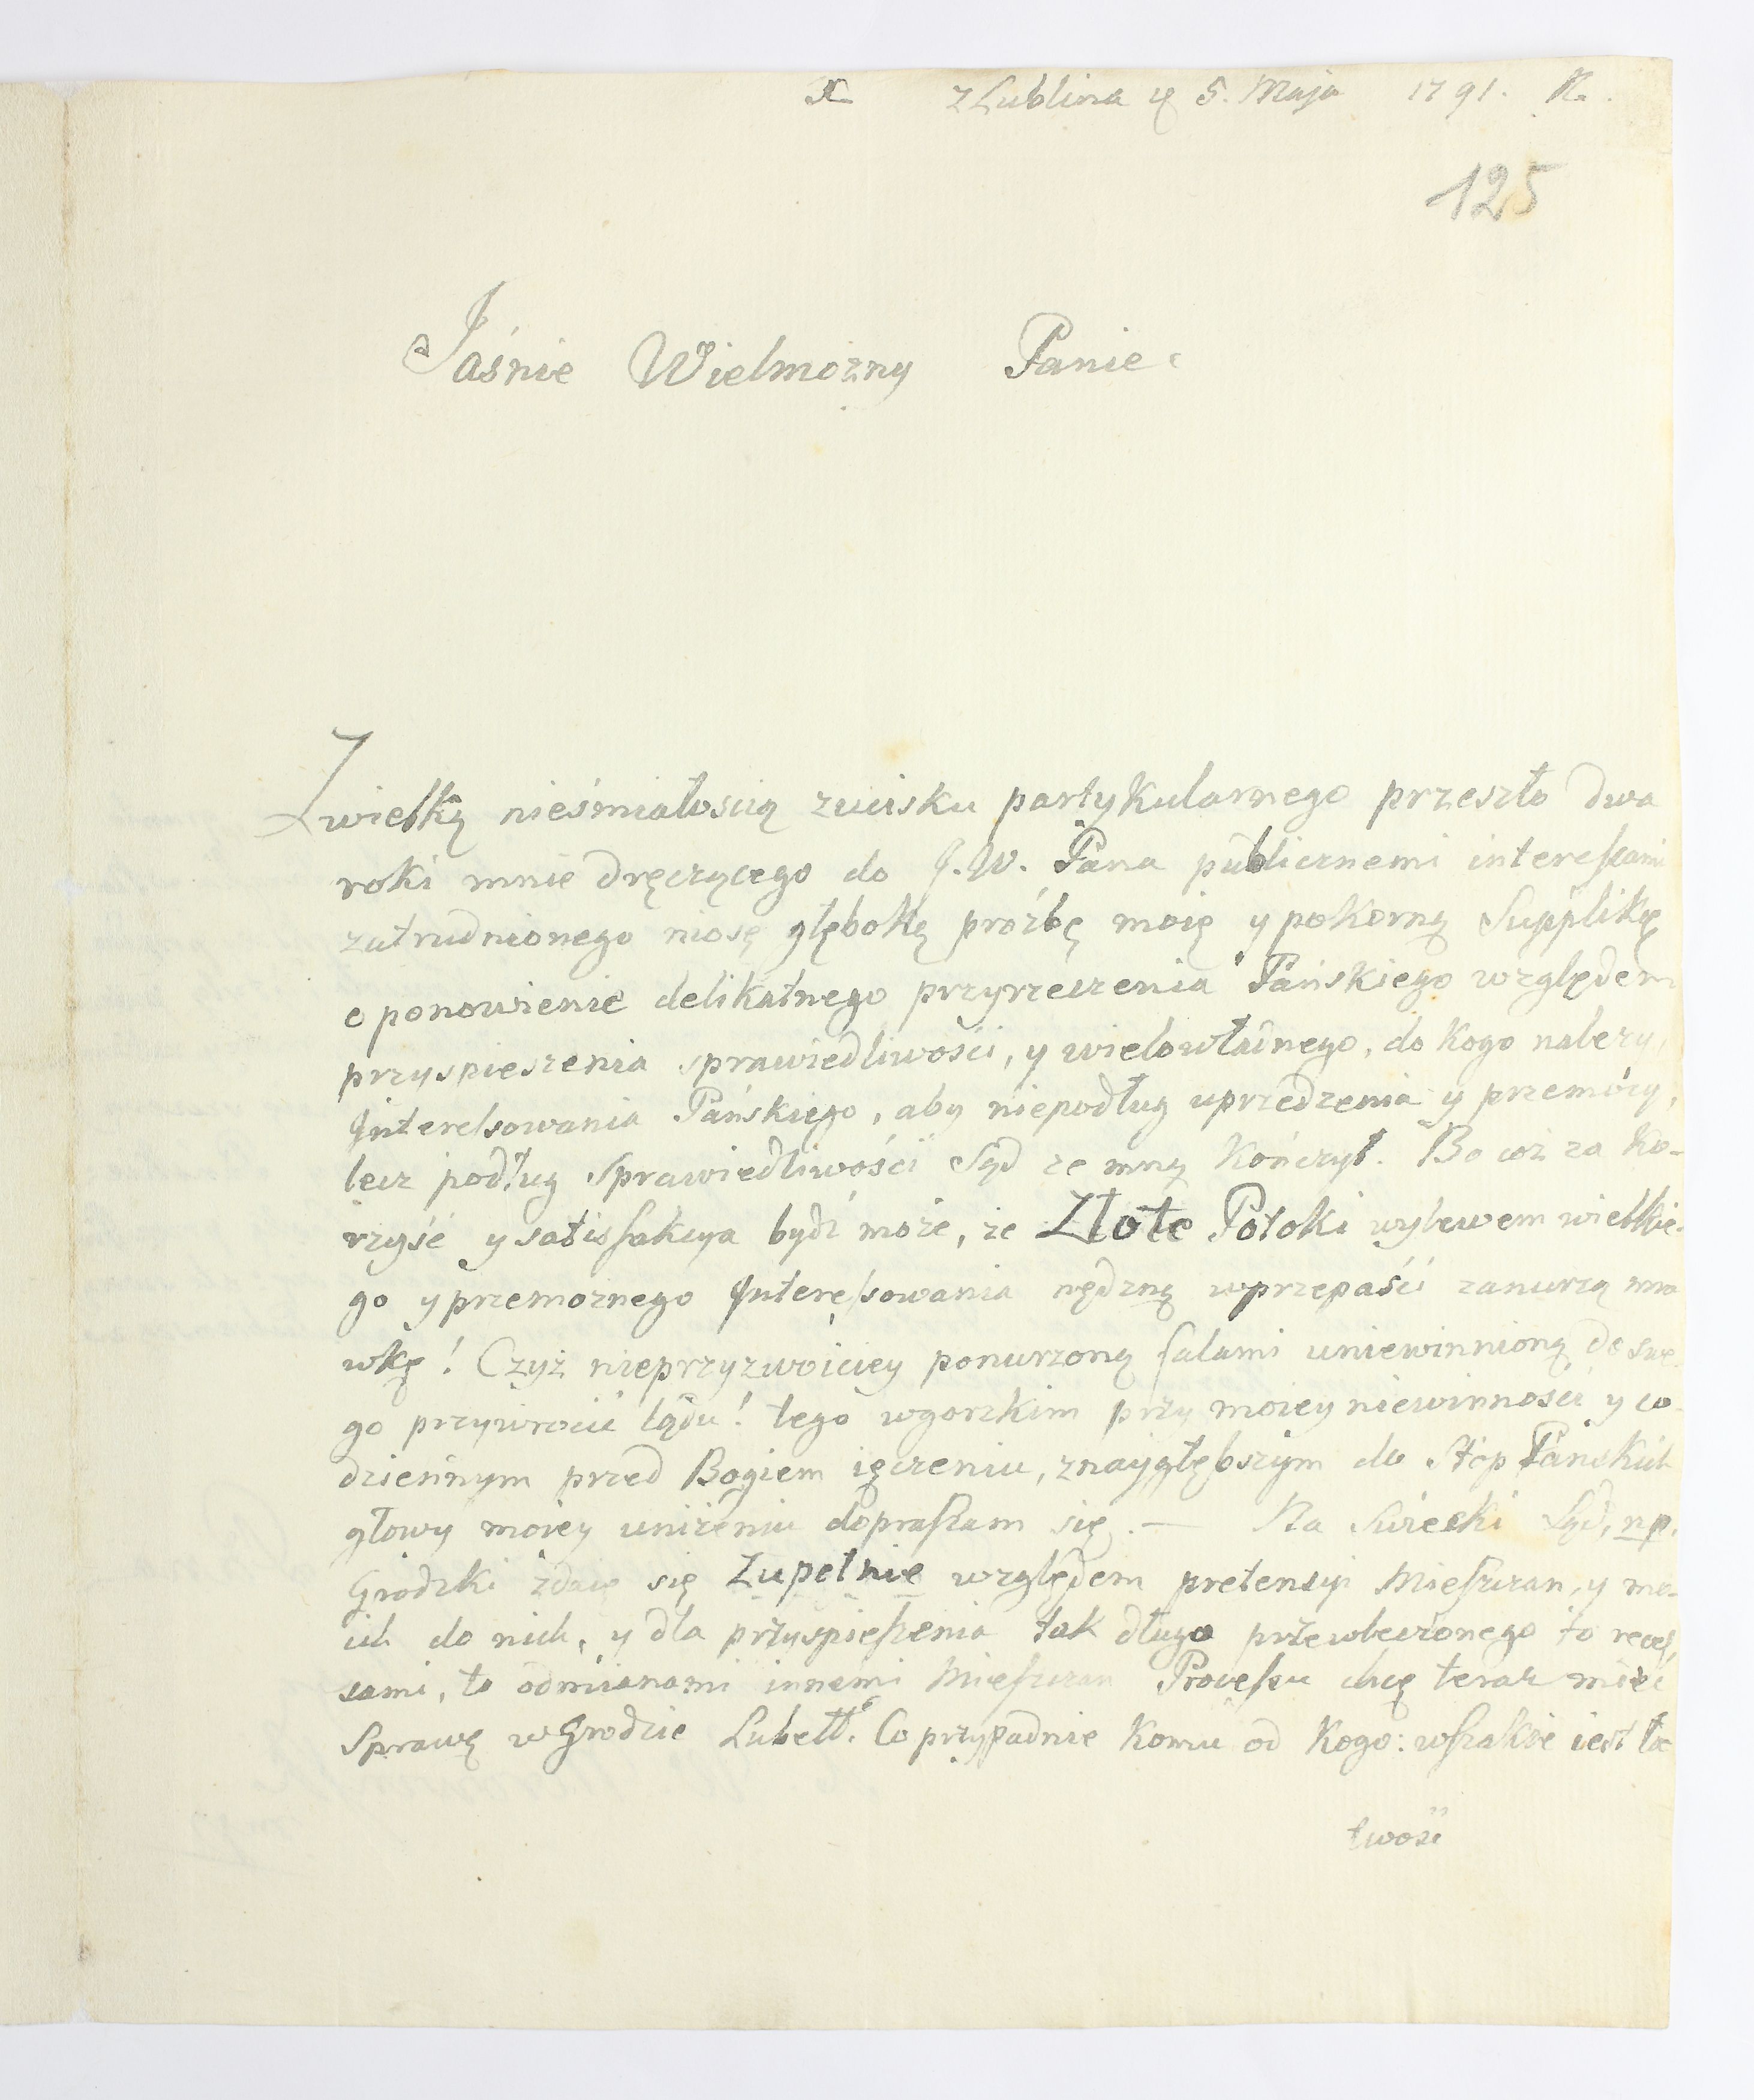 z Lublina 5. Maja 1791. R.
125
Jaśnie Wielmożny Panie
Z wielką nieśmiałością z ucisku partykularnego przeszło dwa
roki mnie dręczącego do J. W. Pana publicznemi interessami
zatrudnionego niosę głęboką proźbę moię y pokorną Supplikę
o ponowienie delikatnego przyrzeczenia Pańskiego względem
przyspieszenia sprawiedliwości, y wielowładnego, do kogo należy,
Interessowania Pańskiego, aby niepodług uprzedzenia y przemocy,
lecz podług sprawiedliwości Sąd ze mną kończył. Bo coż za ko-
rzyść y satisfakcya bydź może, że Złote Potoki wylewem wielkie-
go y przemożnego Interessowania nędzną w przepaści zanurzą mro
wkę! Czyż nieprzyzwoiciey ponurzoną falami uniewinnioną do swe
go przywrocić lądu! tego w gorzkim przy moiey niewinności y co-
dziennym przed Bogiem ięczeniu, z naygłębszym do Stóp Pańskich
głowy moiey uniżeniu dopraszam się. — Na Świecki Sąd, np.
Grodzki zdaię się Zupełnie względem pretensyi Mieszczan, y mo-
ich do nich, y dla przyspieszenia tak długo przewleczonego to reces
sami, to odmianami innemi Mieszczan Processu chcę teraz mieć
Sprawę w Grodzie Lubell. Co przypadnie komu od kogo: wszakże iest ła
twość